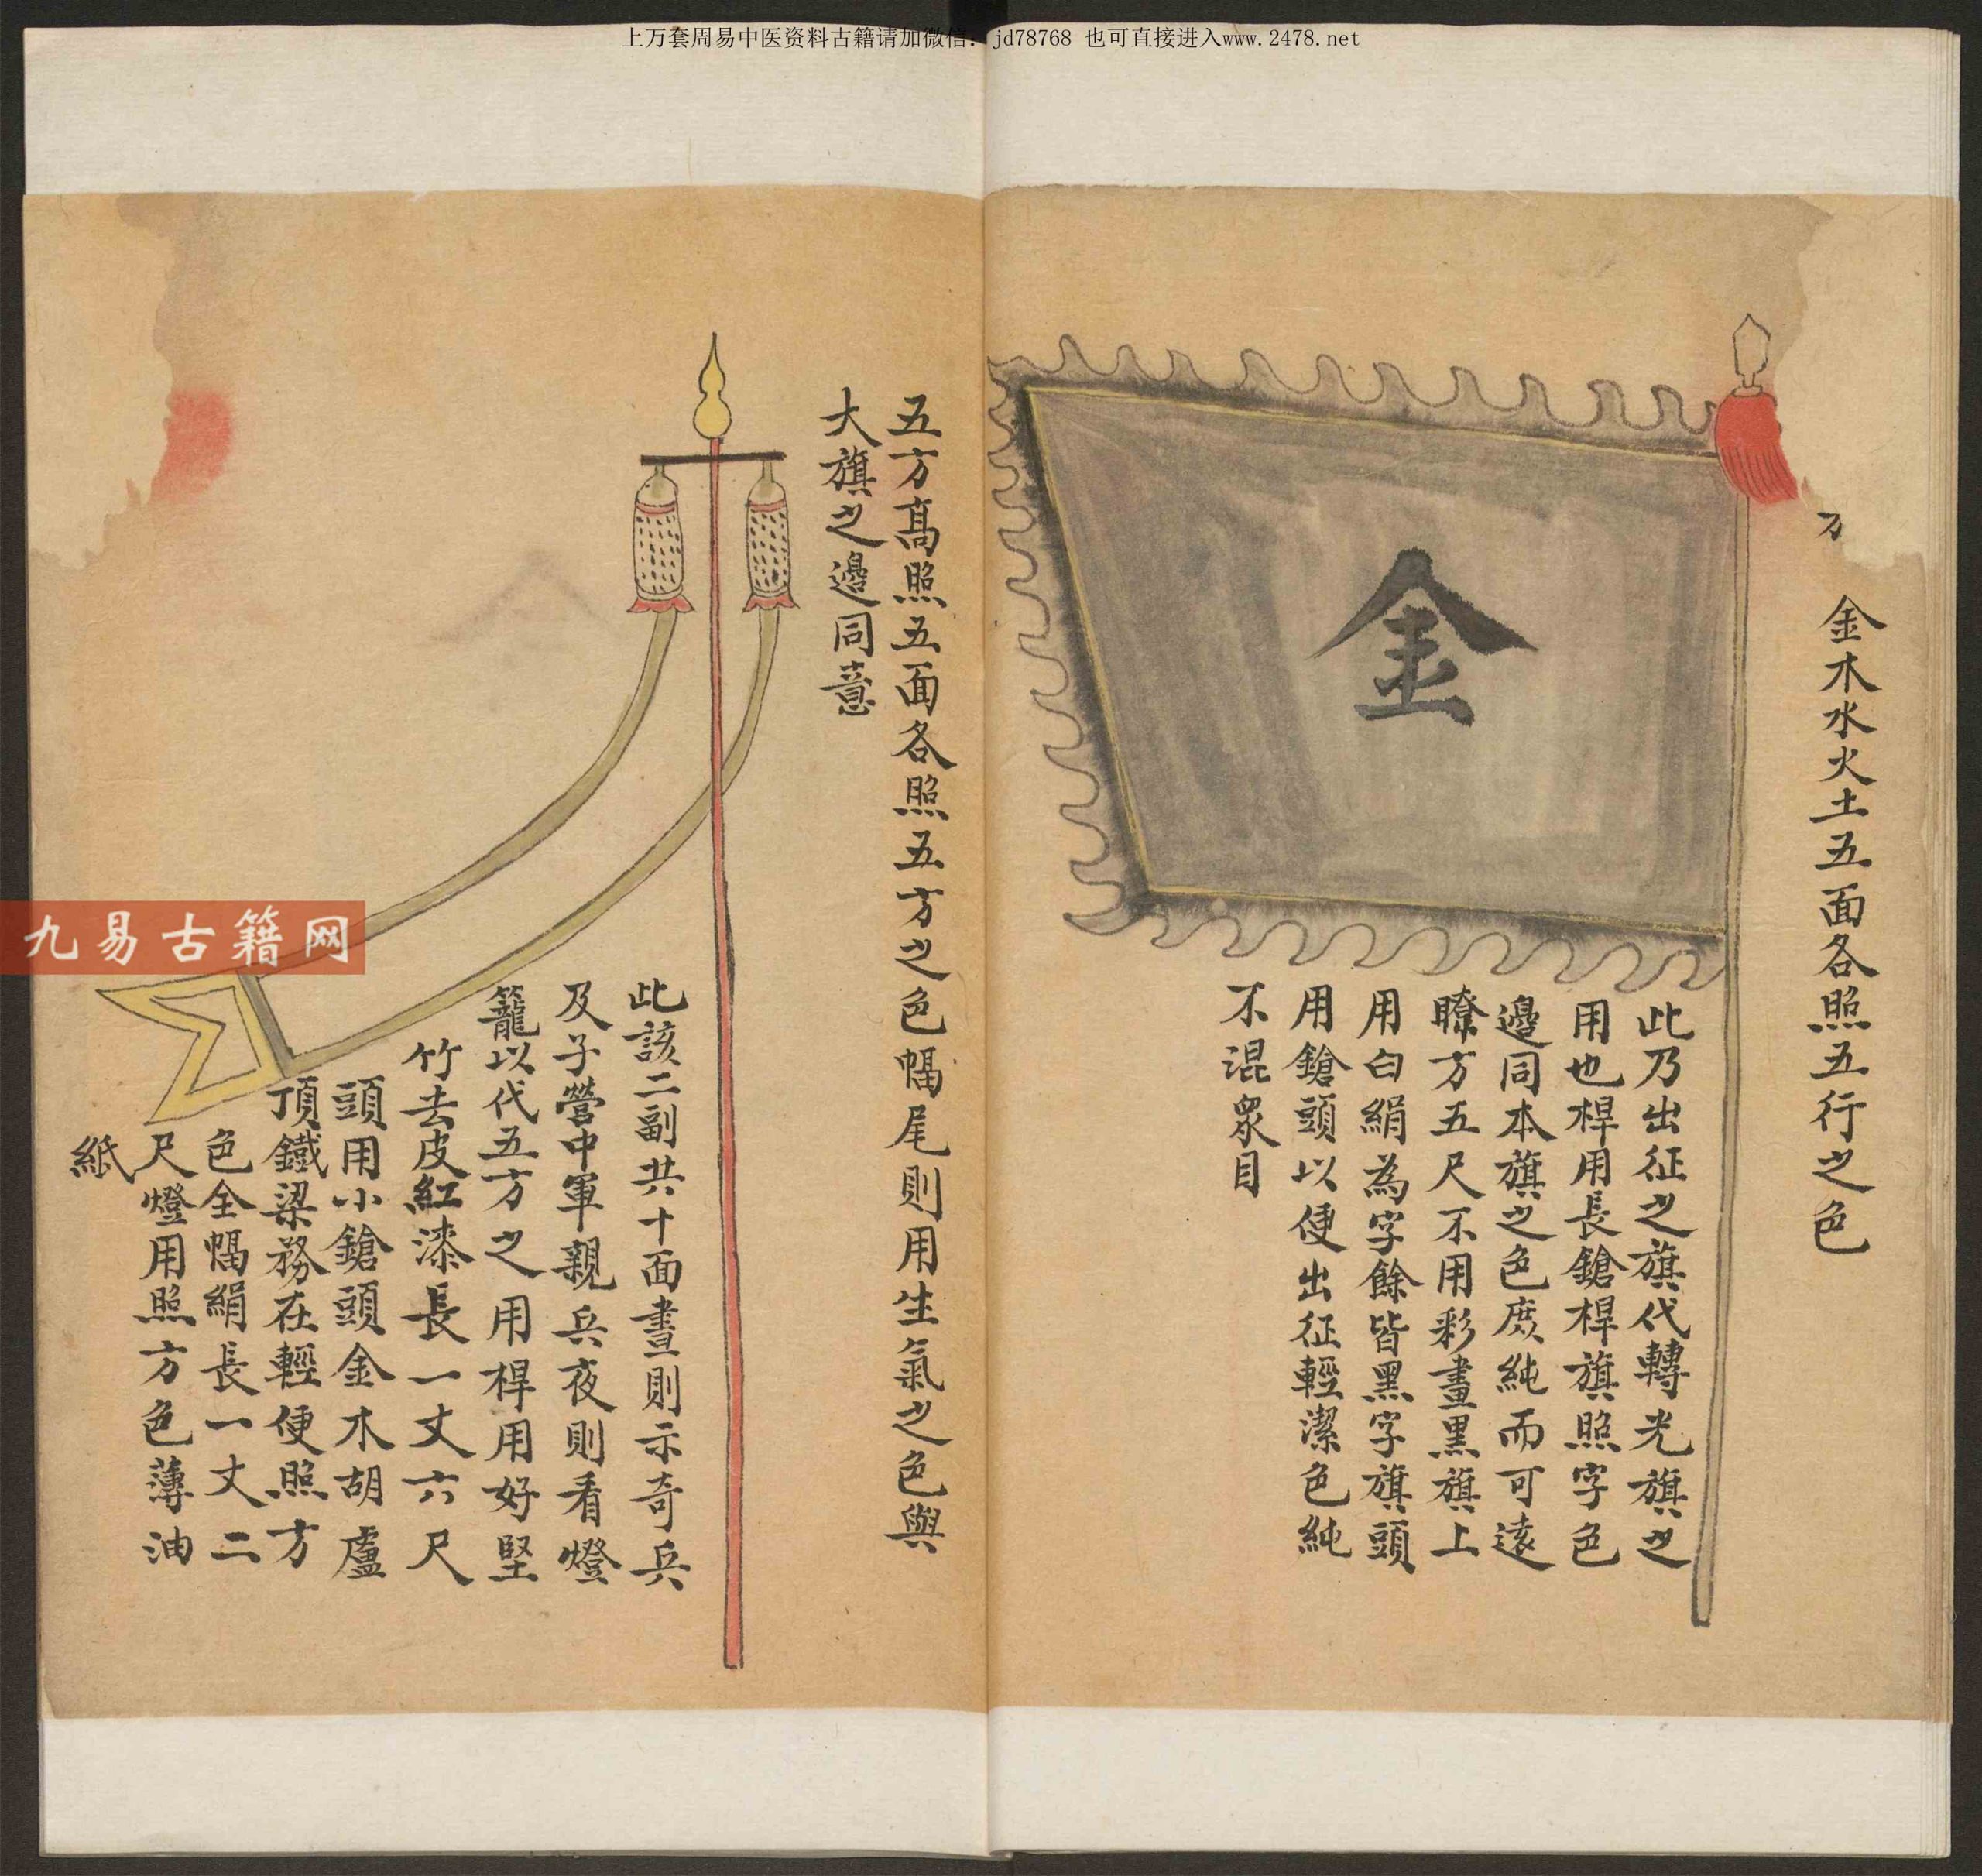 上万套周易中医资料古籍请加微信：jd78768 也可直接进入www.2478.net
金木水火土五面各照五行之色
金
此乃出征之旗代轉光旗之
用也桿用長鎗桿旗照字色
邊同本旗之色庶純而可遠
瞭方五尺不用彩畫黑旗上
用白絹為字餘皆黑字旗頭
用鎗頭以便出征輕潔色純
不混眾目
五方高照五面各照五方之色幅尾則用生氣之色與
大旗之邊同意
此該二副共十面晝則示奇兵
及子營中軍親兵夜則看燈
籠以代五方之用桿用好堅
竹去皮紅漆長一丈六尺
頭用小鎗頭金木胡盧
頂鐵梁務在輕便照方
色全幅絹長一丈二
尺燈用照方色薄油
紙
九易古籍网